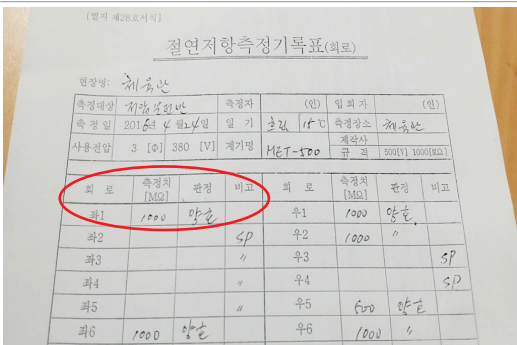 [별지 제28호서식]
절연저항측정기록표(회로)
현장명: 체육관
측정대상 저압분전반 측정자 (인) 입회자 (인)
측정일 2016년 4월 24일 일기 흐림 15℃ 측정장소 체육관
사용전압 3 [Φ] 380 [V] 계기명 MET-500 제작사 규격 500[V] 1000[MΩ]
회로 측정치 [MΩ] 판정 비고 회로 측정치 [MΩ] 판정 비고
좌1 1000 양호 우1 1000 양호
좌2 SP 우2 1000 〃
좌3 〃 우3 SP
좌4 〃 우4 SP
좌5 〃 우5 500 양호
좌6 1000 양호 우6 1000 〃